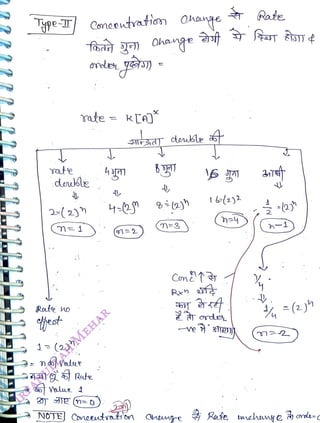 Type-II
Concentration change से Rate
कितने गुना change होगी ये दिया होगा &
order पूछेगा) =
rate = K[A]^x
सान्द्रता double की
rate double
2=(2)^n
n=1
4 गुना
4=(2)^n
n=2
8 गुना
8=(2)^n
n=3
16 गुना
16=(2)^2
n=4
आधी
1/2=(2)^n
n-1
1/4
1/4 = (2)^n
n=-2
Conc^n ↑ से
Rx^n यदि
कम हो रही
है तो order
-ve में आएगा
Rate no
effect
1 = (2)^n
= n की value
की Rate
की value 1
आ जाए n=0
NOTE Concentration change से Rate unchange